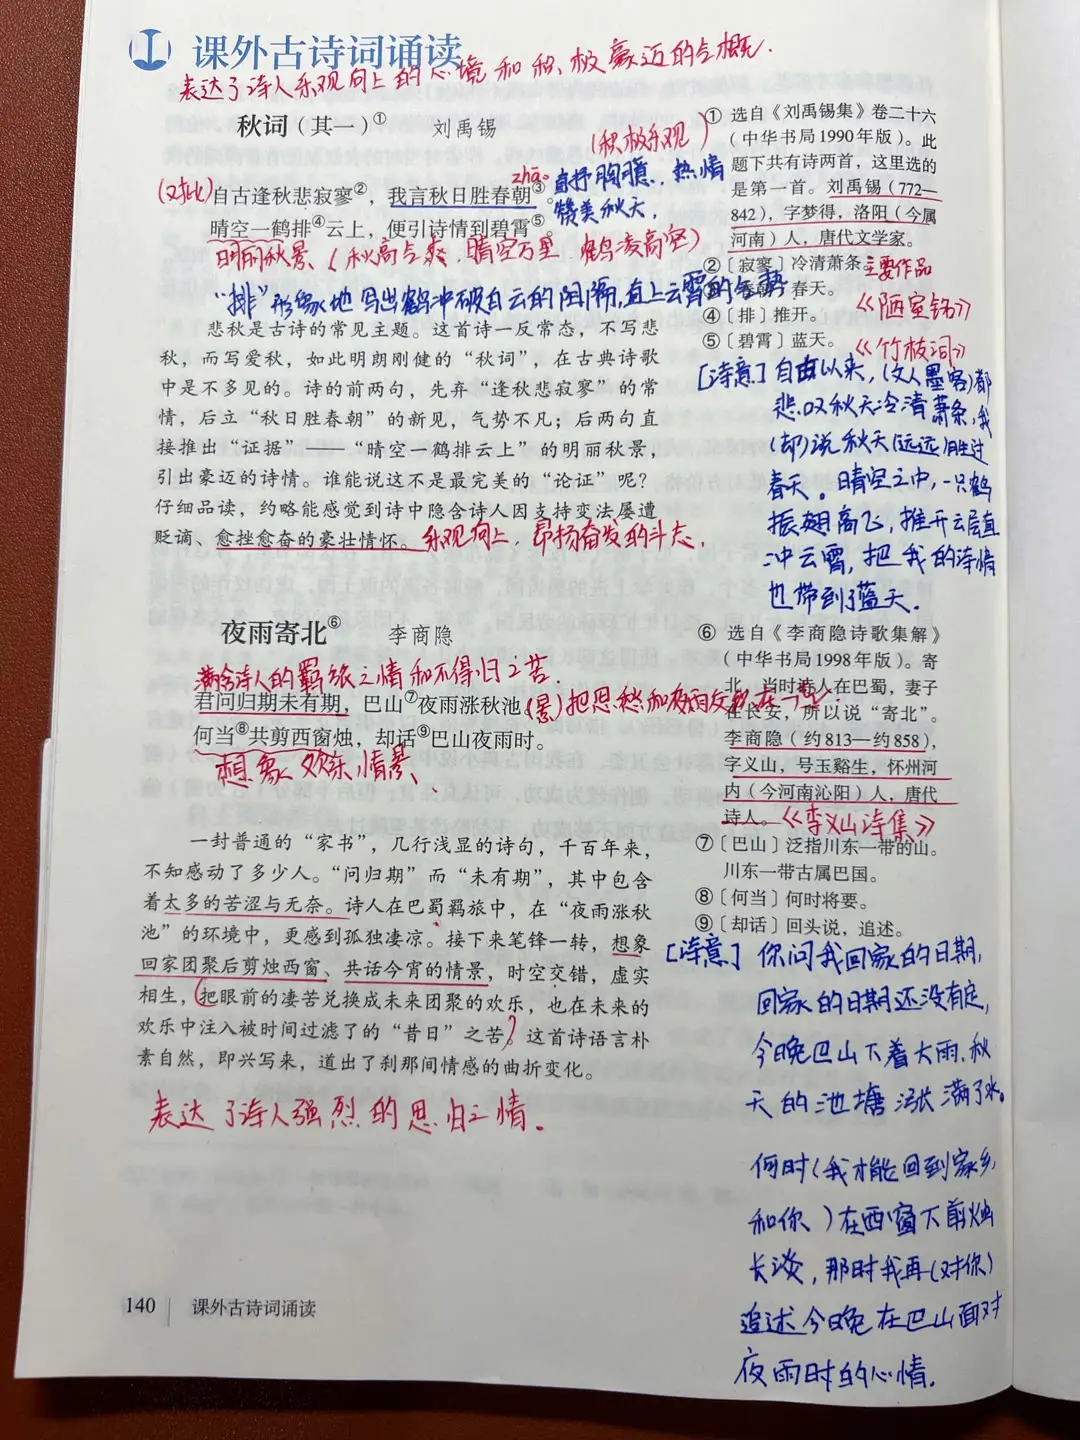 课外古诗词诵读
表达了诗人乐观向上的心境和积极豪迈的气概.
秋词（其一）① 刘禹锡
（积极乐观）
zhāo
（对比）自古逢秋悲寂寥②，我言秋日胜春朝③。
直抒胸臆，热情
赞美秋天，
晴空一鹤排④云上，便引诗情到碧霄⑤。
明丽秋景（秋高气爽.晴空万里 鹤凌高空）
“排”形象地写出鹤冲破白云的阻隔,直上云霄的气势
悲秋是古诗的常见主题。这首诗一反常态，不写悲
秋，而写爱秋，如此明朗刚健的“秋词”，在古典诗歌
中是不多见的。诗的前两句，先弃“逢秋悲寂寥”的常
情，后立“秋日胜春朝”的新见，气势不凡；后两句直
接推出“证据”——“晴空一鹤排云上”的明丽秋景，
引出豪迈的诗情。谁能说这不是最完美的“论证”呢？
仔细品读，约略能感觉到诗中隐含诗人因支持变法屡遭
贬谪、愈挫愈奋的豪壮情怀。乐观向上，昂扬奋发的斗志,
① 选自《刘禹锡集》卷二十六
（中华书局1990年版）。此
题下共有诗两首，这里选的
是第一首。刘禹锡（772—
842），字梦得，洛阳（今属
河南）人，唐代文学家。
②〔寂寥〕冷清萧条。主要作品
春天。
④〔排〕推开。《陋室铭》
⑤〔碧霄〕蓝天。《竹枝词》
[诗意]自古以来,（文人墨客）都
悲叹秋天冷清萧条,我
（却）说秋天（远远）胜过
春天。晴空之中,一只鹤
振翅高飞,推开云层直
冲云霄,把我的诗情
也带到了蓝天.
夜雨寄北⑥ 李商隐
满含诗人的羁旅之情和不得归之苦.
君问归期未有期，巴山⑦夜雨涨秋池。（景）把思愁和夜雨交织在一起
何当⑧共剪西窗烛，却话⑨巴山夜雨时。
想象欢乐情景、
一封普通的“家书”，几行浅显的诗句，千百年来，
不知感动了多少人。“问归期”而“未有期”，其中包含
着太多的苦涩与无奈。诗人在巴蜀羁旅中，在“夜雨涨秋
池”的环境中，更感到孤独凄凉。接下来笔锋一转，想象
回家团聚后剪烛西窗、共话今宵的情景，时空交错，虚实
相生，把眼前的凄苦兑换成未来团聚的欢乐，也在未来的
欢乐中注入被时间过滤了的“昔日”之苦。这首诗语言朴
素自然，即兴写来，道出了刹那间情感的曲折变化。
表达了诗人强烈的思归之情.
⑥ 选自《李商隐诗歌集解》
（中华书局1998年版）。寄
北，当时诗人在巴蜀，妻子
在长安，所以说“寄北”。
李商隐（约813—约858），
字义山，号玉谿生，怀州河
内（今河南沁阳）人，唐代
诗人。《李义山诗集》
⑦〔巴山〕泛指川东一带的山。
川东一带古属巴国。
⑧〔何当〕何时将要。
⑨〔却话〕回头说，追述。
[诗意]你问我回家的日期,
回家的日期还没有定,
今晚巴山下着大雨,秋
天的池塘涨满了水。
何时（我才能回到家乡,
和你）在西窗下剪烛
长谈,那时我再（对你）
追述今晚在巴山面对
夜雨时的心情.
140 课外古诗词诵读